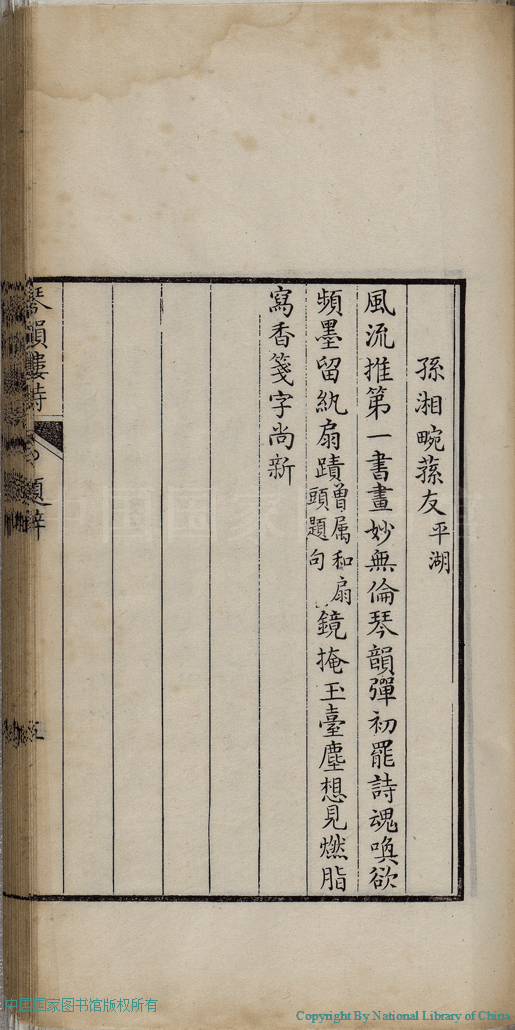 孫湘畹蓀友平湖
風流推第一書畫妙無倫琴韻彈初罷詩魂喚欲
頻墨留紈扇蹟曾属和扇頭題句鏡掩玉臺塵想見燃脂
寫香箋字尚新
琴韻樓詩 題辭
五
中国国家图书馆版权所有
Copyright By National Library of China